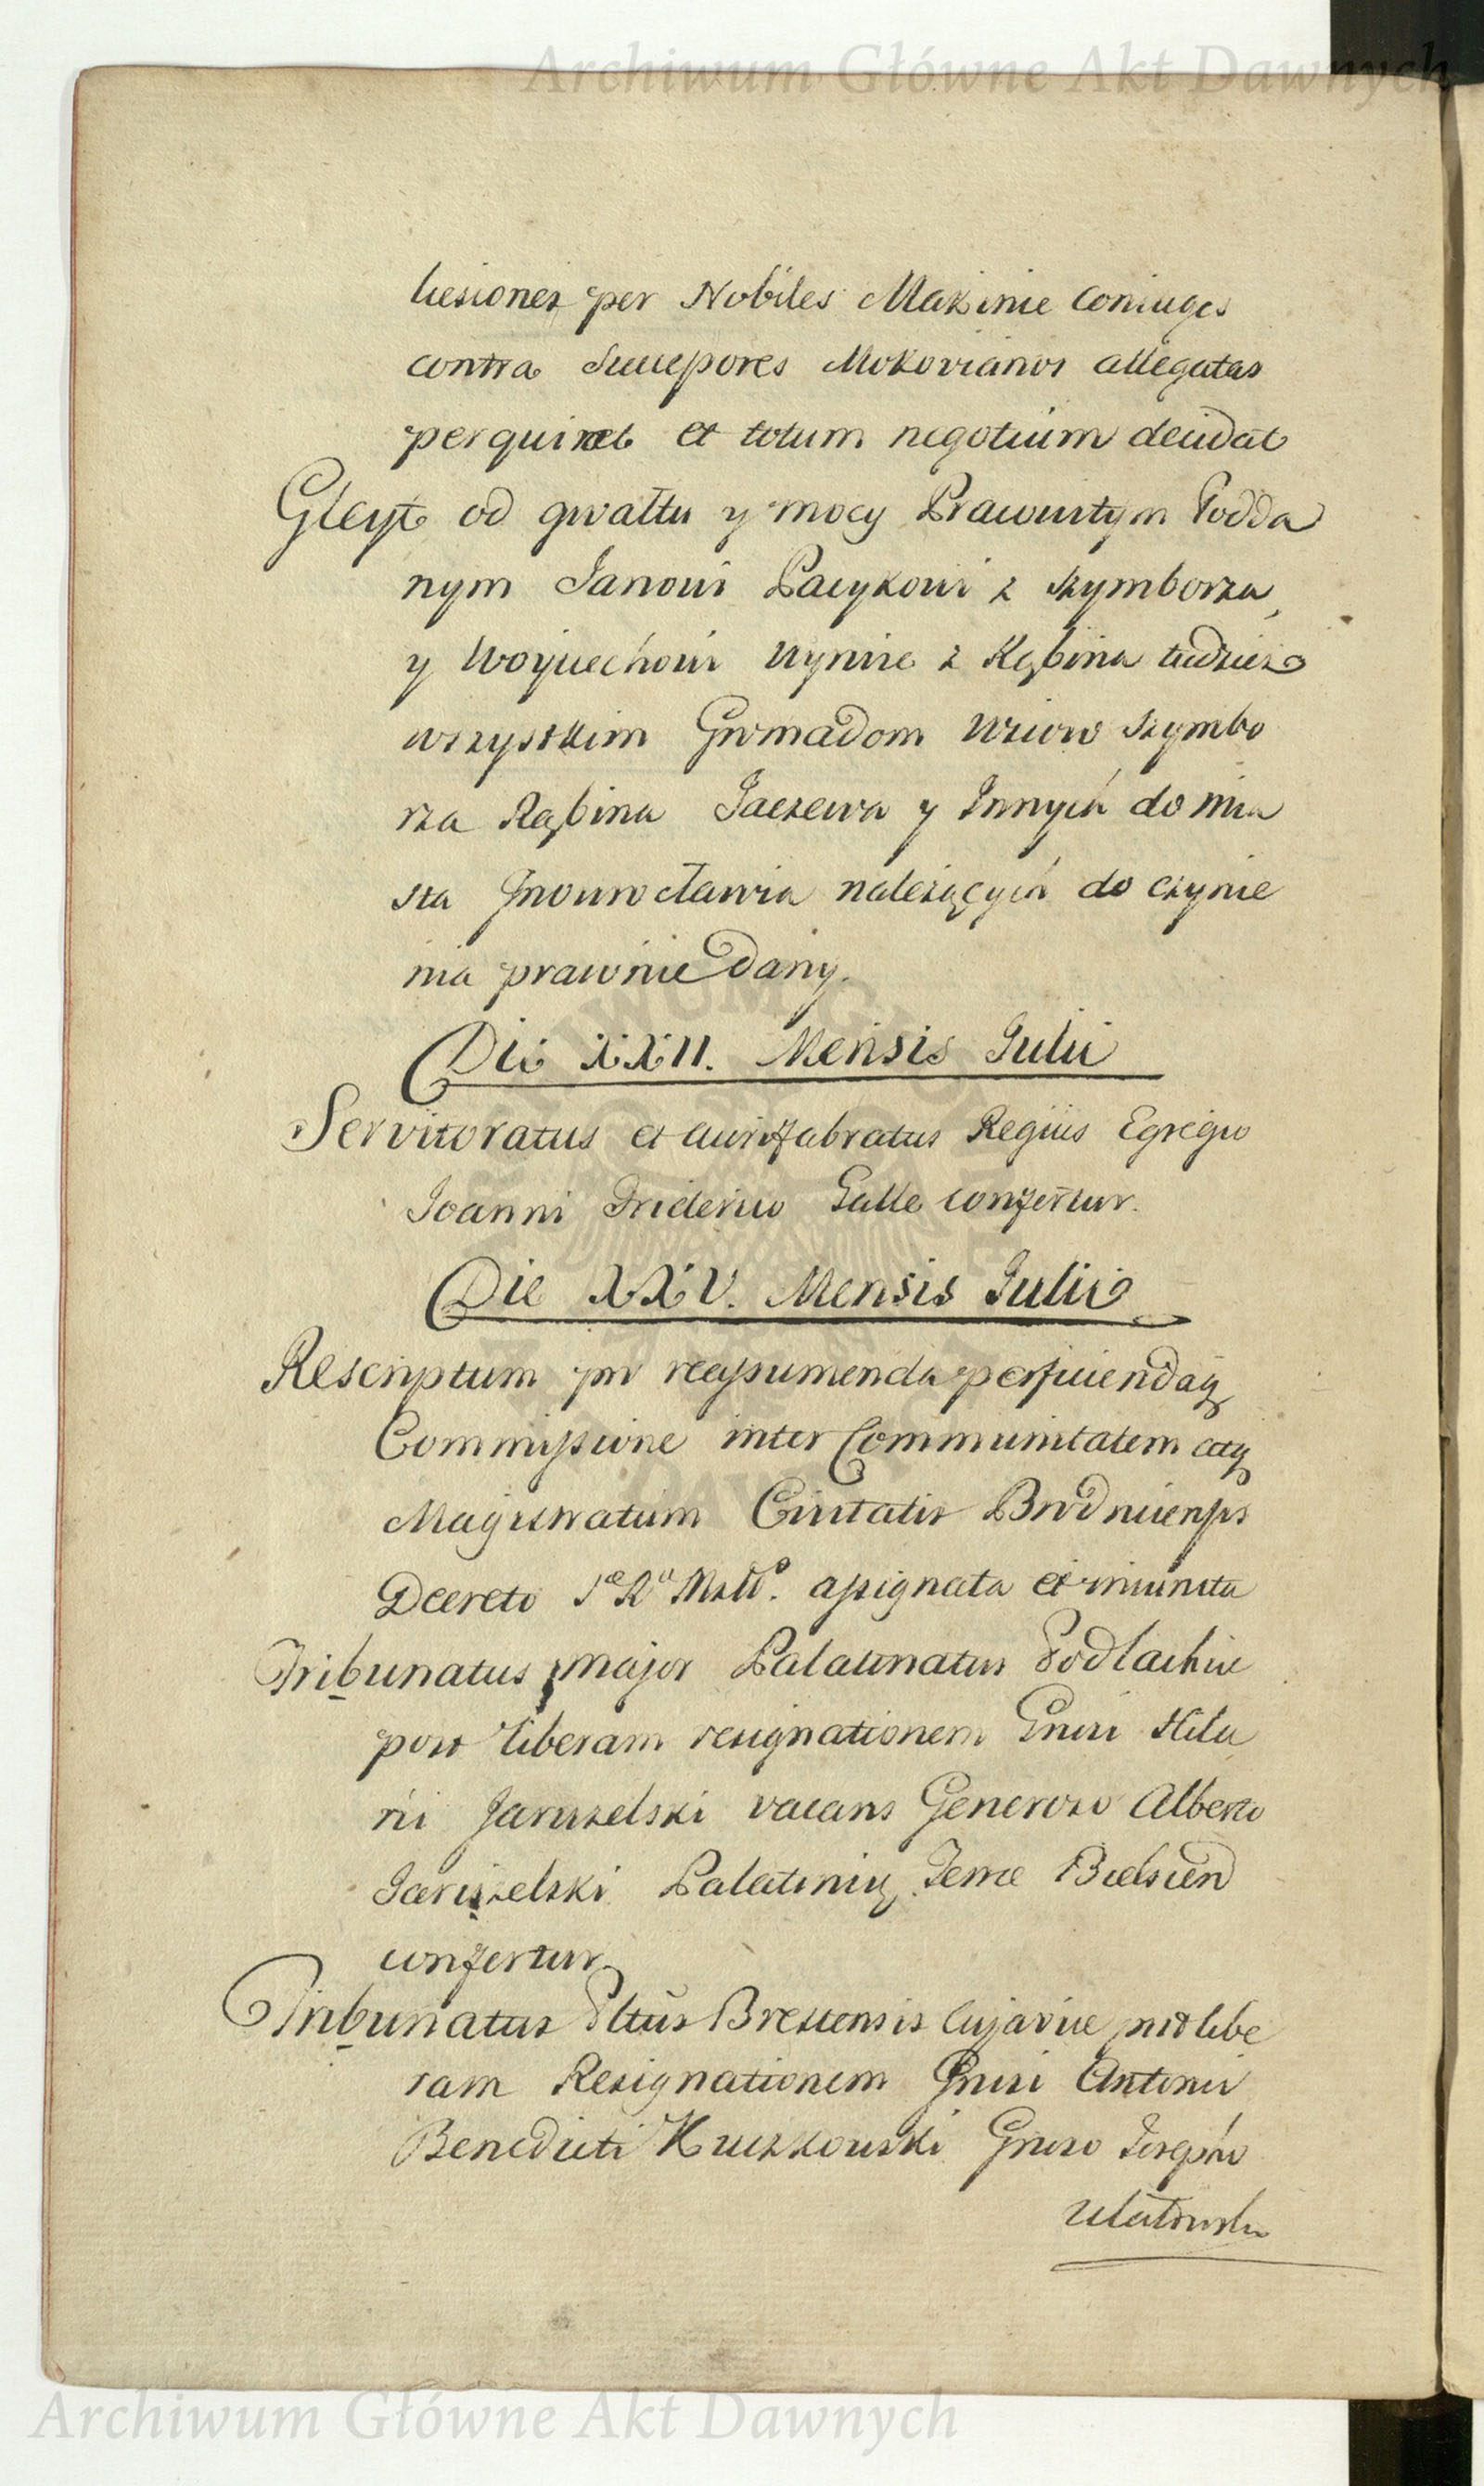 Archiwum Główne Akt Dawnych
liesiones per Nobiles Makinie Coniuges
contra Succepores Mokovianos allegatas
perquiret et totum negotium decidat
Gleyt od gwałtu y mocy Pracowitym Podda
nym Janowi Pacykowi z Szymborza,
y Woyciechowi z Rąbina tudziesz
wszystkim Gromadom Wsiow Szymbo
rza Rąbina Jaczewa y Innych do mia
sta Jnowrocławia należących do czynie
nia prawnie Dany.
Die XXII. Mensis Julii
Servitoratus et Aurifabratus Regius Egregio
Joanni Friderico Galle confertur.
Die XXV. Mensis Julii
Rescriptum pro reassumenda perficiendaq
Commissione inter Communitatem atq
Magistratum Civitatis Brodnicensis
Decreto Sæ Ræ Mttis. assignata et iniuncta
Tribunatus major Palatinatus Podlachiæ
post liberam resignationem Gnisi Hila
rii Jaruzelski vacans Generoso Alberto
Jaruzelski Palatiniq Terræ Bielscen
confertur.
Tribunatus Pltus Brestensis Cujaviæ post libe
ram Resignationem Gnisi Antonii
Benedicti Kruszkowski Gnoso Josepho
Ulatowski
Archiwum Główne Akt Dawnych